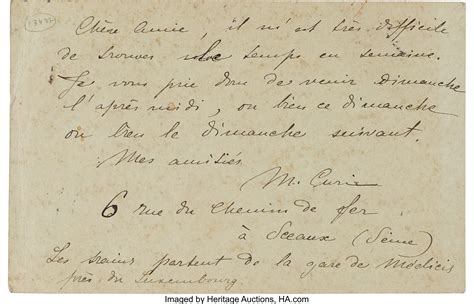 Chère Amie, il m'est très difficile
de trouver le temps en semaine.
Je vous prie donc de venir Dimanche
l'après midi, ou bien ce dimanche
ou bien le dimanche suivant.
Mes amitiés
M. Curie
6 rue du Chemin de fer
à Sceaux (Seine)
Les trains partent de la gare de Médicis
près du Luxembourg.
Imaged by Heritage Auctions, HA.com